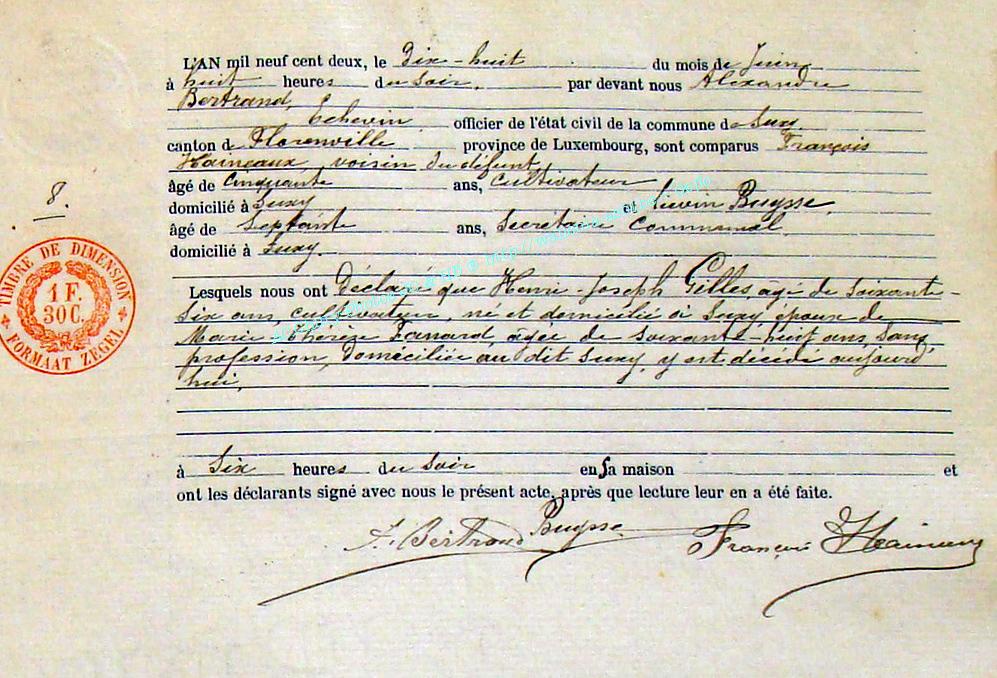 L'AN mil neuf cent deux, le Dix-huit du mois de Juin
à huit heures du soir, par devant nous Alexandre
Bertrand,
Echevin officier de l'état civil de la commune de Suxy
canton de Florenville province de Luxembourg, sont comparus François
Haineaux, voisin du défunt,
âgé de Cinquante ans, Cultivateur
domicilié à Suxy et Lievin Buysse,
âgé de Septante ans, Secrétaire Communal,
domicilié à Suxy.
8.
TIMBRE DE DIMENSION
1 F.
30 C.
FORMAAT ZEGEL
Lesquels nous ont Déclaré que Henri-Joseph Gilles, agé de soixante-
six ans, cultivateur, né et domicilié à Suxy, époux de
Marie Thérèze Fanard, agée de soixante-huit ans, sans
profession, domiciliée au dit Suxy, y est décédé aujourd
hui,
à Six heures du soir en sa maison et
ont les déclarants signé avec nous le présent acte, après que lecture leur en a été faite.
A. Bertrand Buysse François Haineaux